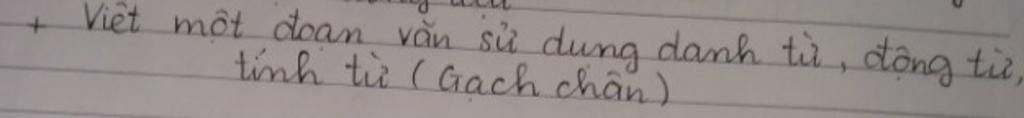 + Viết một đoạn văn sử dụng danh từ, động từ,
tính từ (Gạch chân)